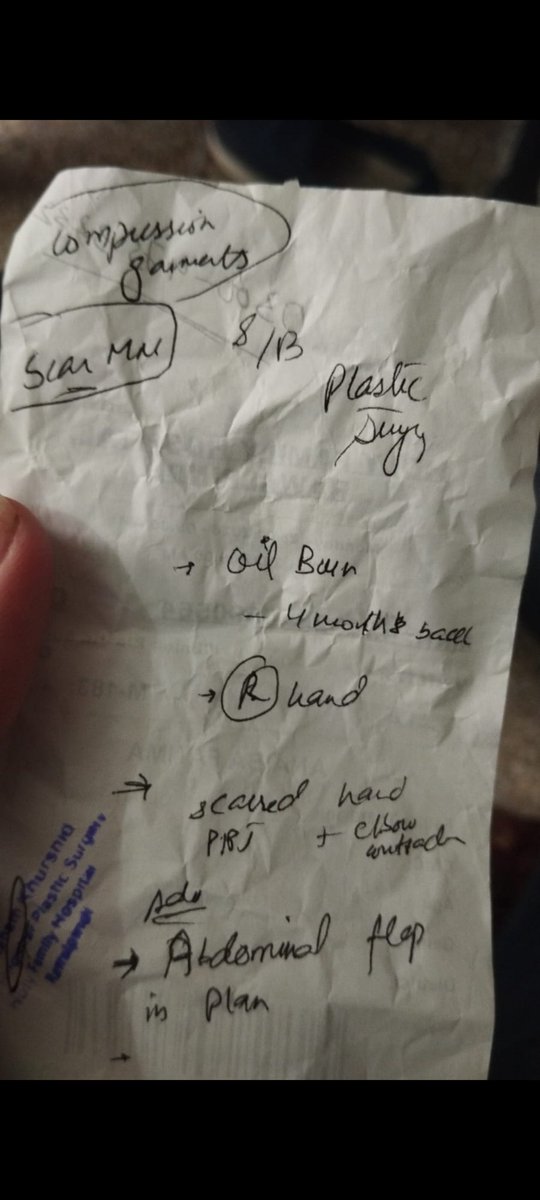 Compression
garments
Scar Mx
S/B
Plastic
Surgy
→ Oil Burn
- 4 months back
→ R hand
⇒ scarred hand
+ elbow
Adv
→ Abdominal flap
in plan
→
Khurshid
Plastic Surgery
Family Hospital
Rawalpindi